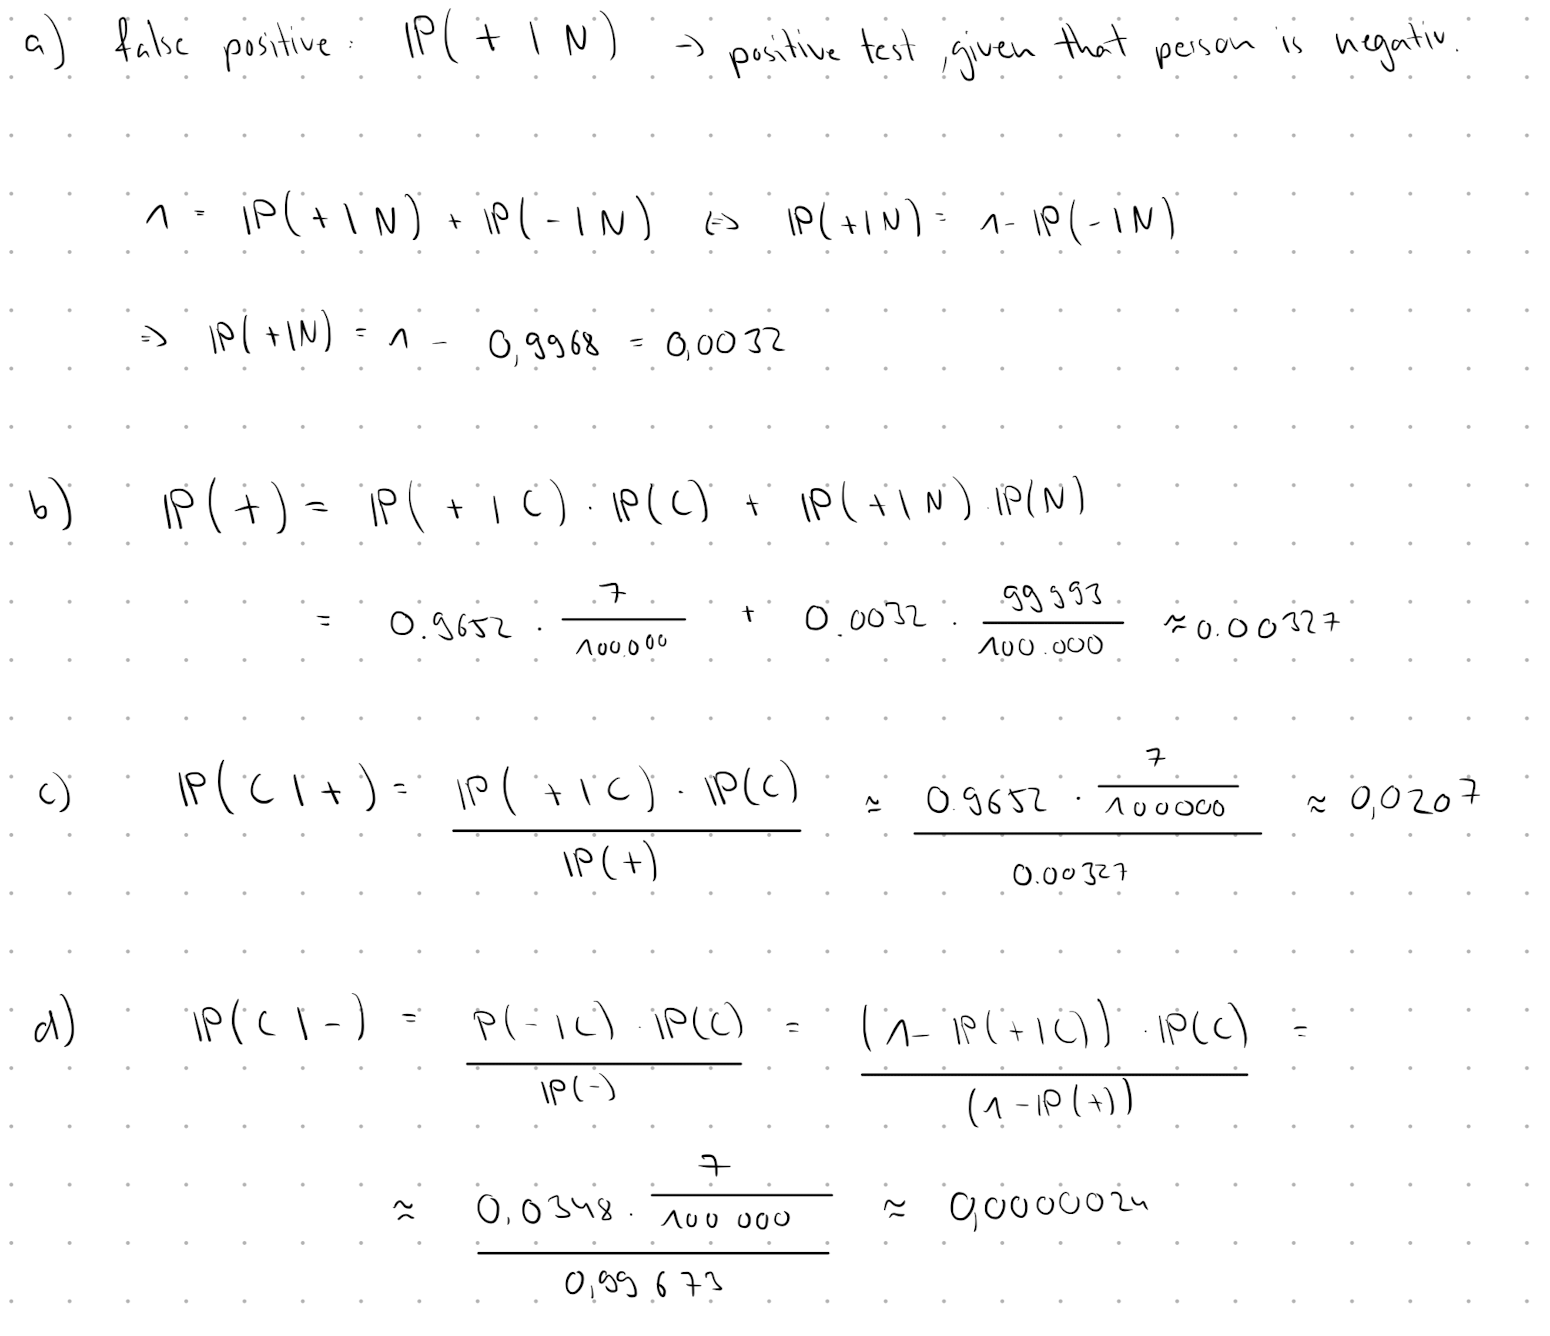 a) false positive: IP(+ | N) → positive test, given that person is negativ.
1 = IP(+|N) + IP(-|N) ⇔ IP(+|N) = 1 - IP(-|N)
⇒ IP(+|N) = 1 - 0,9968 = 0,0032
b) IP(+) = IP(+|C) · IP(C) + IP(+|N) · IP(N)
= 0.9652 · 7/100.000 + 0.0032 · 99993/100.000 ≈ 0.00327
c) IP(C|+) = IP(+|C) · IP(C) / IP(+) ≈ 0.9652 · 7/100000 / 0.00327 ≈ 0,0207
d) IP(C|-) = P(-|C) · IP(C) / IP(-) = (1 - IP(+|C)) · IP(C) / (1 - IP(+)) =
≈ 0,0348 · 7/100 000 / 0,99673 ≈ 0,0000024